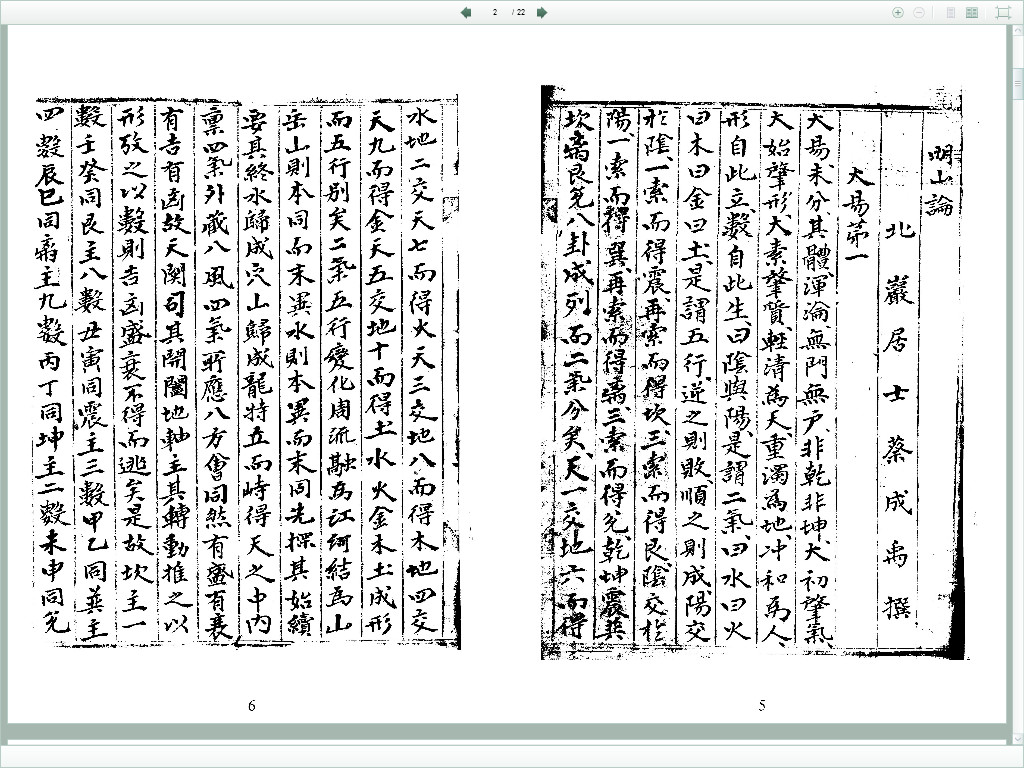 2 / 22
明山論
北巖居士蔡成禹撰
大易苐一
大易未分其體渾淪無門無戶非乾非坤大初肇氣
大始肇形大素肇質輕清為天重濁為地冲和為人
形自此立數自此生曰陰與陽是謂二氣曰水曰火
曰木曰金曰土是謂五行逆之則敗順之則成陽交
於陰一索而得震再索而得坎三索而得艮陰交於
陽一索而得巽再索而得离三索而得兌乾坤震巽
坎离艮兌八卦成列而二氣分矣天一交地六而得
水地二交天七而得火天三交地八而得木地四交
天九而得金天五交地十而得土水火金木土成形
而五行別矣二氣五行変化周流融為江河結為山
岳山則本同而末異水則本異而末同先探其始續
要其終水歸成穴山歸成龍特立而峙得天之中內
禀四氣外藏八風四氣所應八方會同然有盛有衰
有吉有凶故天関司其開闔地軸主其轉動推之以
形攷之以數則吉凶盛衰不得而逃矣是故坎主一
數壬癸同艮主八數丑寅同震主三數甲乙同巽主
四數辰巳同离主九數丙丁同坤主二數未申同兌
6
5